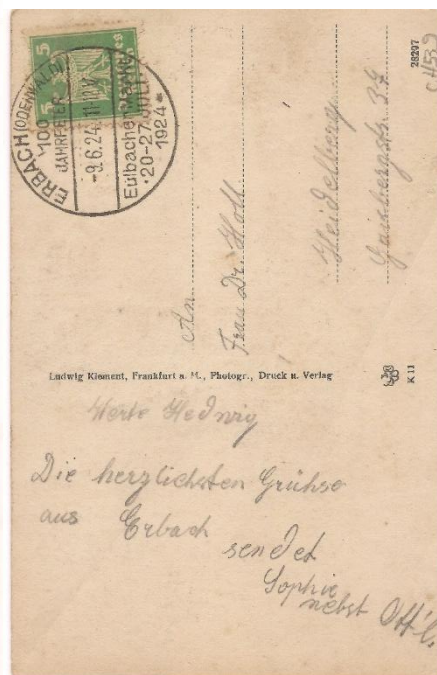 5 5
ERBACH (ODENWALD)
100
JAHRFEIER
-9.6.24.
Eulbacher Markt
·20-27. JULI
1924*
28297
An
Frau Dr. Holl
Heidelberg
Gaisbergstr. 37
Ludwig Klement, Frankfurt a. M., Photogr., Druck u. Verlag
K 11
Werte Hedwig
Die herzlichsten Grühse
aus Erbach
sendet
Sophie
nebst